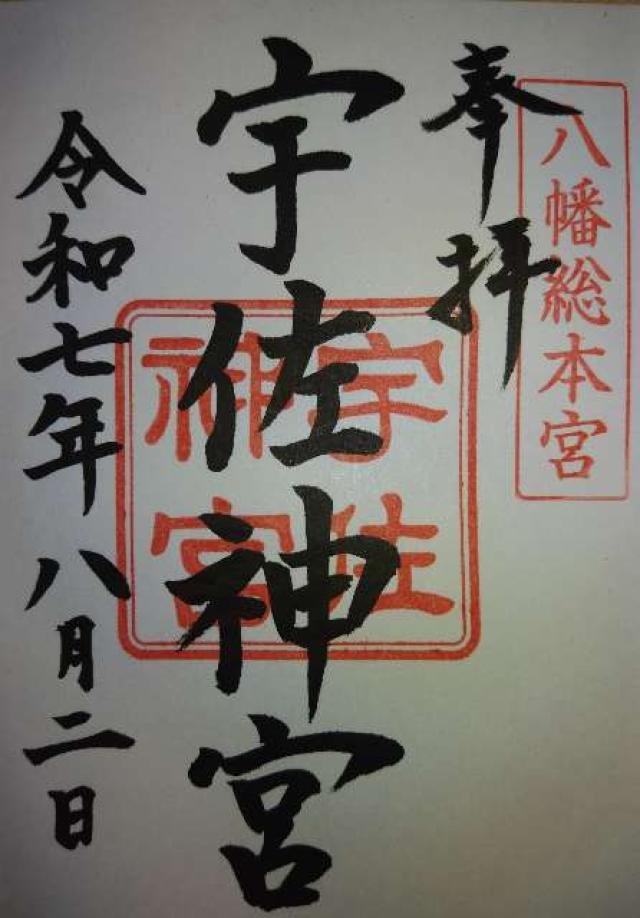 八幡総本宮
奉拝
宇佐神宮
宇佐神宮
令和七年八月二日